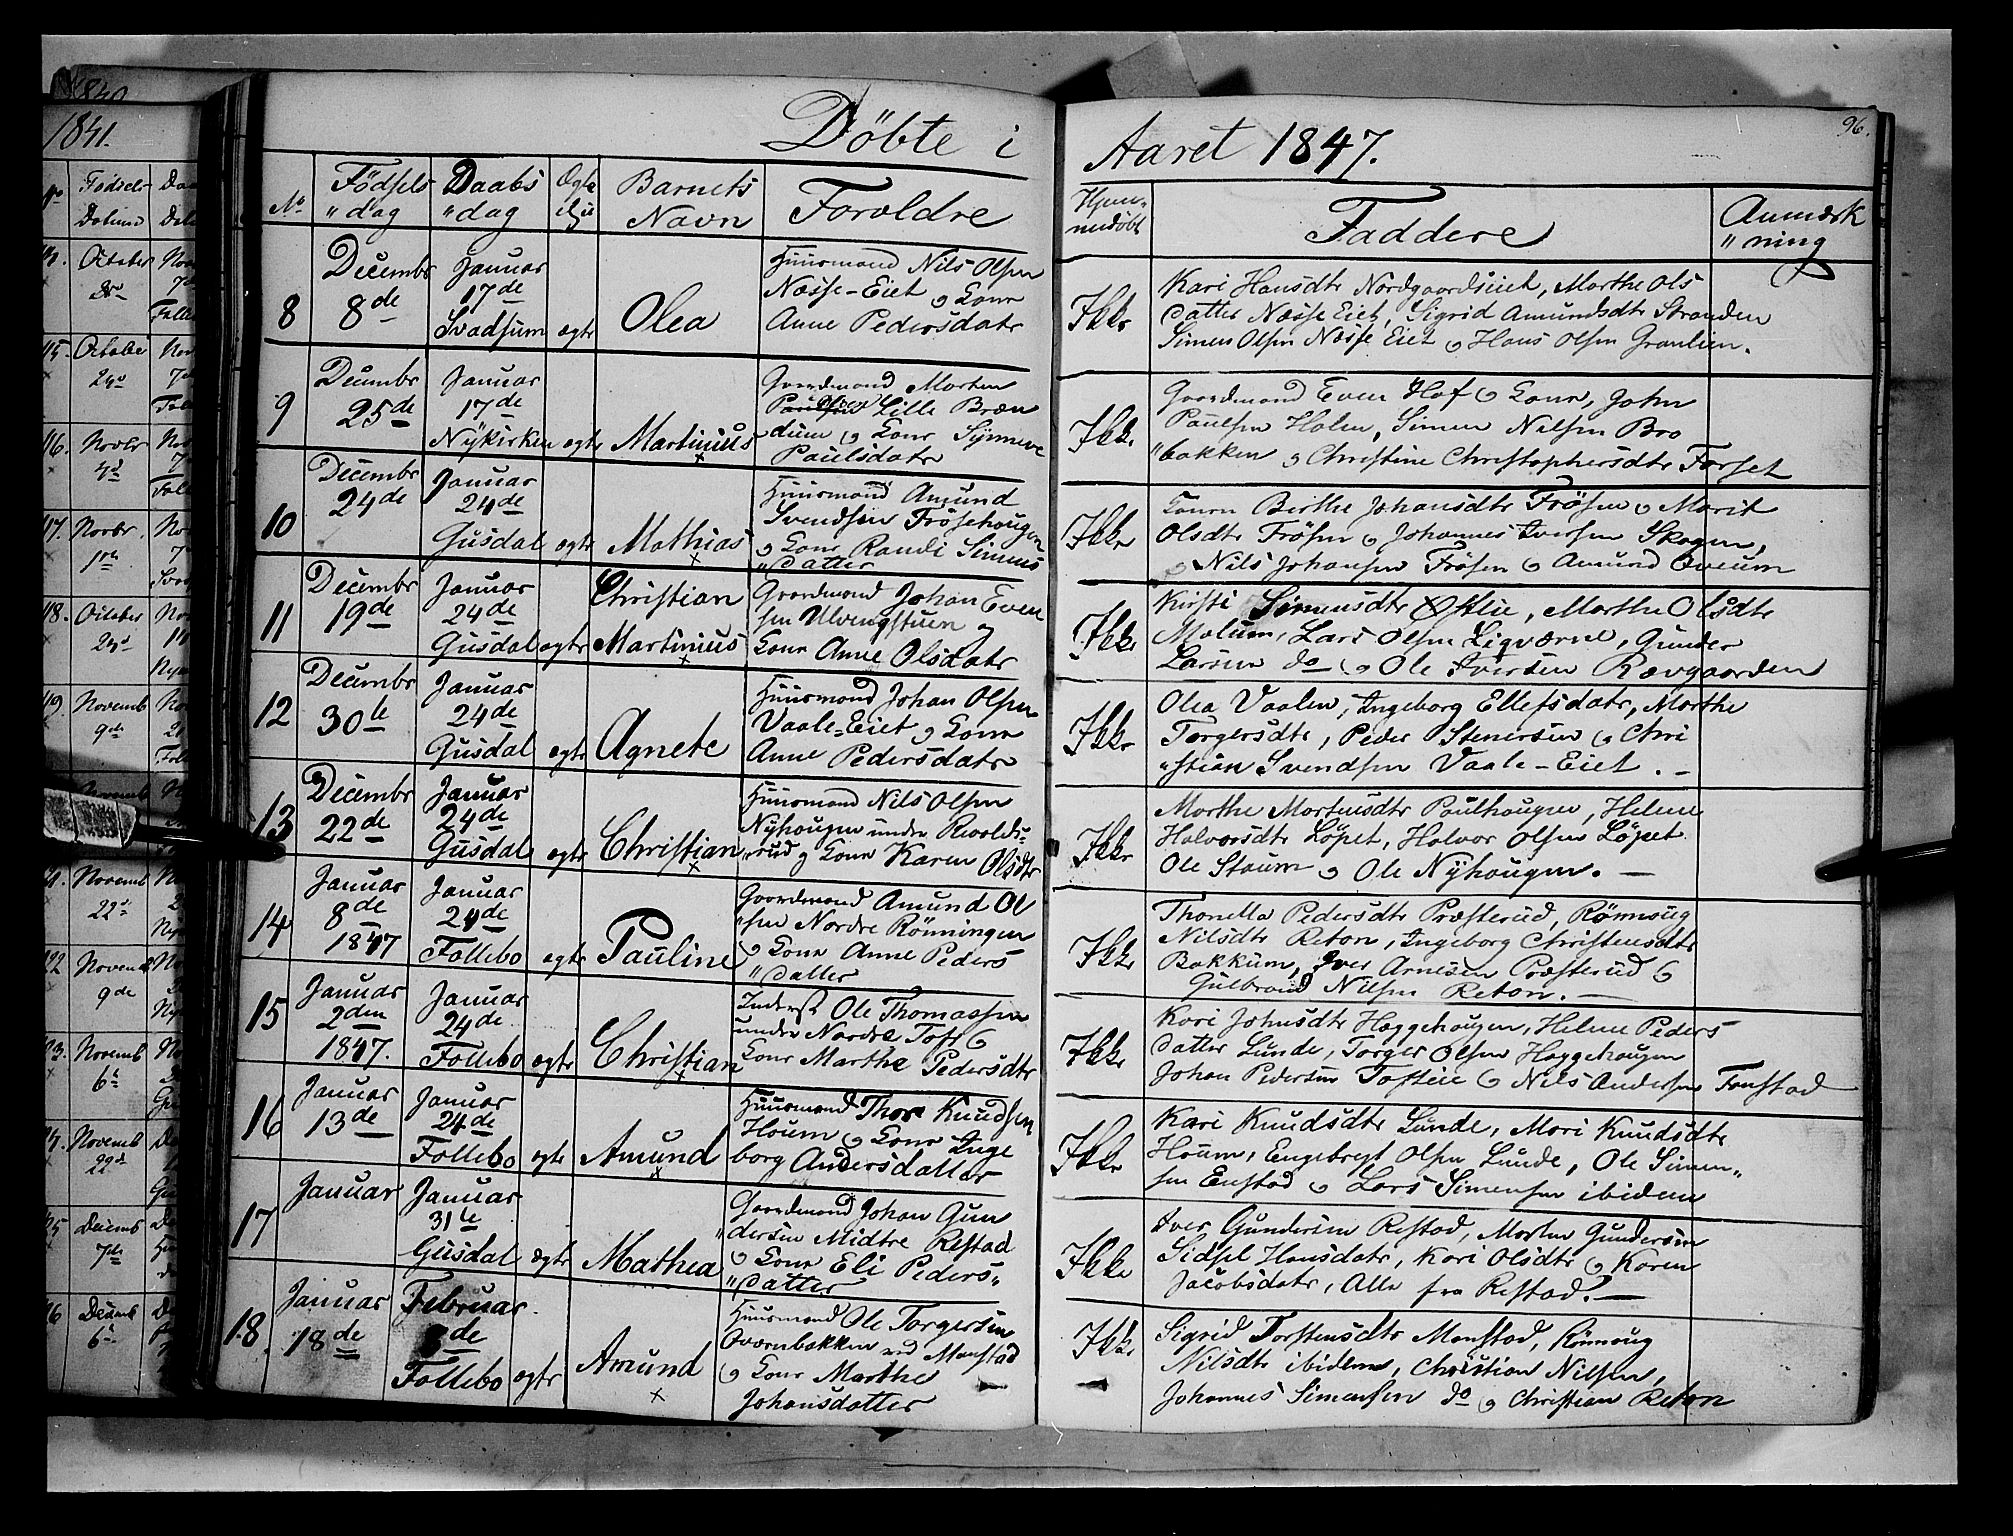 1840
1841.
Döbte i
Aaret 1847.
96.
No
Födsels
"dag
Daabs
"dag
Ægte
Barnets
Navn
Foroldre
Hjem-
medöbt
Faddere
Anmærk
"ning
8
Decembr
8de
Januar
17de
Svadsum
ægte
Olea
Huusmand Nils Olsen
Næsse-Eiet og Konr
Anne Pedersdatr
Ikke
Kari Hansdtr Nordgaardseiet, Marthe Ols
datter Næsse Eiet, Sigrid Amundsdtr Stranden
Simen Olsen Næsse Eiet og Hans Olsen Granlien.
9
Decembr
25de
Januar
17de
Nykirken
ægte
Martinius
Gaardmand Morten
Lille Bræn
dum og Konr Synneve
Paulsdatr
Ikke
Gaardmand Even Hof og Konr, John
Paulsen Holen, Simen Nilsen Bro
"bakken og Christine Christophersdtr Forset
10
Decembr
24de
Januar
24de
Gusdal
ægte
Mathias
Huusmand Amund
Svendsen Frösehougen
og Konr Randi Simens
"datter
Ikke
Konen Berthe Johansdtr Frösen og Marit
Olsdtr Frösen og Johannes Iversen Skogen,
og Nils Johansen Frösen og Amund Oveum
11
Decembr
19de
Januar
24de
Gusdal
ægte
Christian
Martinius
Gaardmand Johan Even
sen Ulvengstuen og
Konr Anne Olsdatr
Ikke
Kristi Simensdtr Öxlie, Marthe Olsdtr
Molum, Lars Olsen Ligværne, Gunder
Larsen do og Ole Iversen Rævgaarden
12
Decembr
30te
Januar
24de
Gusdal
ægte
Agnete
Huusmand Johan Olsen
Vaale-Eiet og Konr
Anne Pedersdatr
Ikke
Olea Vaalen, Ingeborg Ellefsdatr, Marthe
Torgersdtr, Peder Stenersen og Chri
"stian Svendsen Vaale-Eiet.
13
Decembr
22de
Januar
24de
Gusdal
ægte
Christian
Huusmand Nils Olsen
Nyhougen under Revolds-
"rud og Konr Karen Olsdtr
Ikke
Marthe Mortensdtr Poulhougen, Helene
Halvorsdtr Löpet, Halvor Olsen Löpet
Ole Staum og Ole Nyhougen.
14
Januar
8de
1847
Januar
24de
Follebo
ægte
Pauline
Gaardmand Amund Ol
"sen Nordre Rönningen
og Konr Anne Peders
"datter
Ikke
Thonetta Pedersdtr Præsterud, Rönnaug
Nilsdtr Reton, Ingeborg Christensdtr
Bakkum, Iver Arnesen Præsterud og
Gulbrand Nilsen Reton.
15
Januar
2den
1847.
Januar
24de
Follebo
ægte
Christian
Inderst Ole Thomassen
under Nordre Toft og
Konr Marthe Pedersdtr
Ikke
Kari Johnsdtr Haggehougen, Helene Peders
datter Lunde, Torger Olsen Haggehougen
Johan Pedersen Tofteie og Nils Andersen Fonstad
16
Januar
13de
Januar
24de
Follebo
ægte
Amund
Huusmand Thor Knudsen
Houm og Konr Inge
borg Andersdatter
Ikke
Kari Knudsdtr Lunde, Mari Knudsdtr
Houm, Engebregt Olsen Lunde, Ole Simen"
sen Enstad og Lars Simensen ibidem
17
Januar
Januar
31te
Gusdal
ægte
Mathea
Gaardmand Johan Gun
"dersen Midtre Restad
og Konr Eli Peders"
"datter
Ikke
Iver Gundersen Restad, Morten Gundersen
Sidsel Hansdatr, Kari Olsdtr og Karen
Jacobsdatr, Alle fra Restad.
18.
Januar
18de
Februar
8de
Follebo
ægte
Amund
Huusmand Ole Torgersen
Oværnbakken ved Monstad
og Konr Marthe
Johansdatter
Ikke
Sigrid Torstensdtr Monstad, Rönnoug
Nilsdtr ibidem, Christian Nilsen,
Johannes Simensen do og Christian Reton